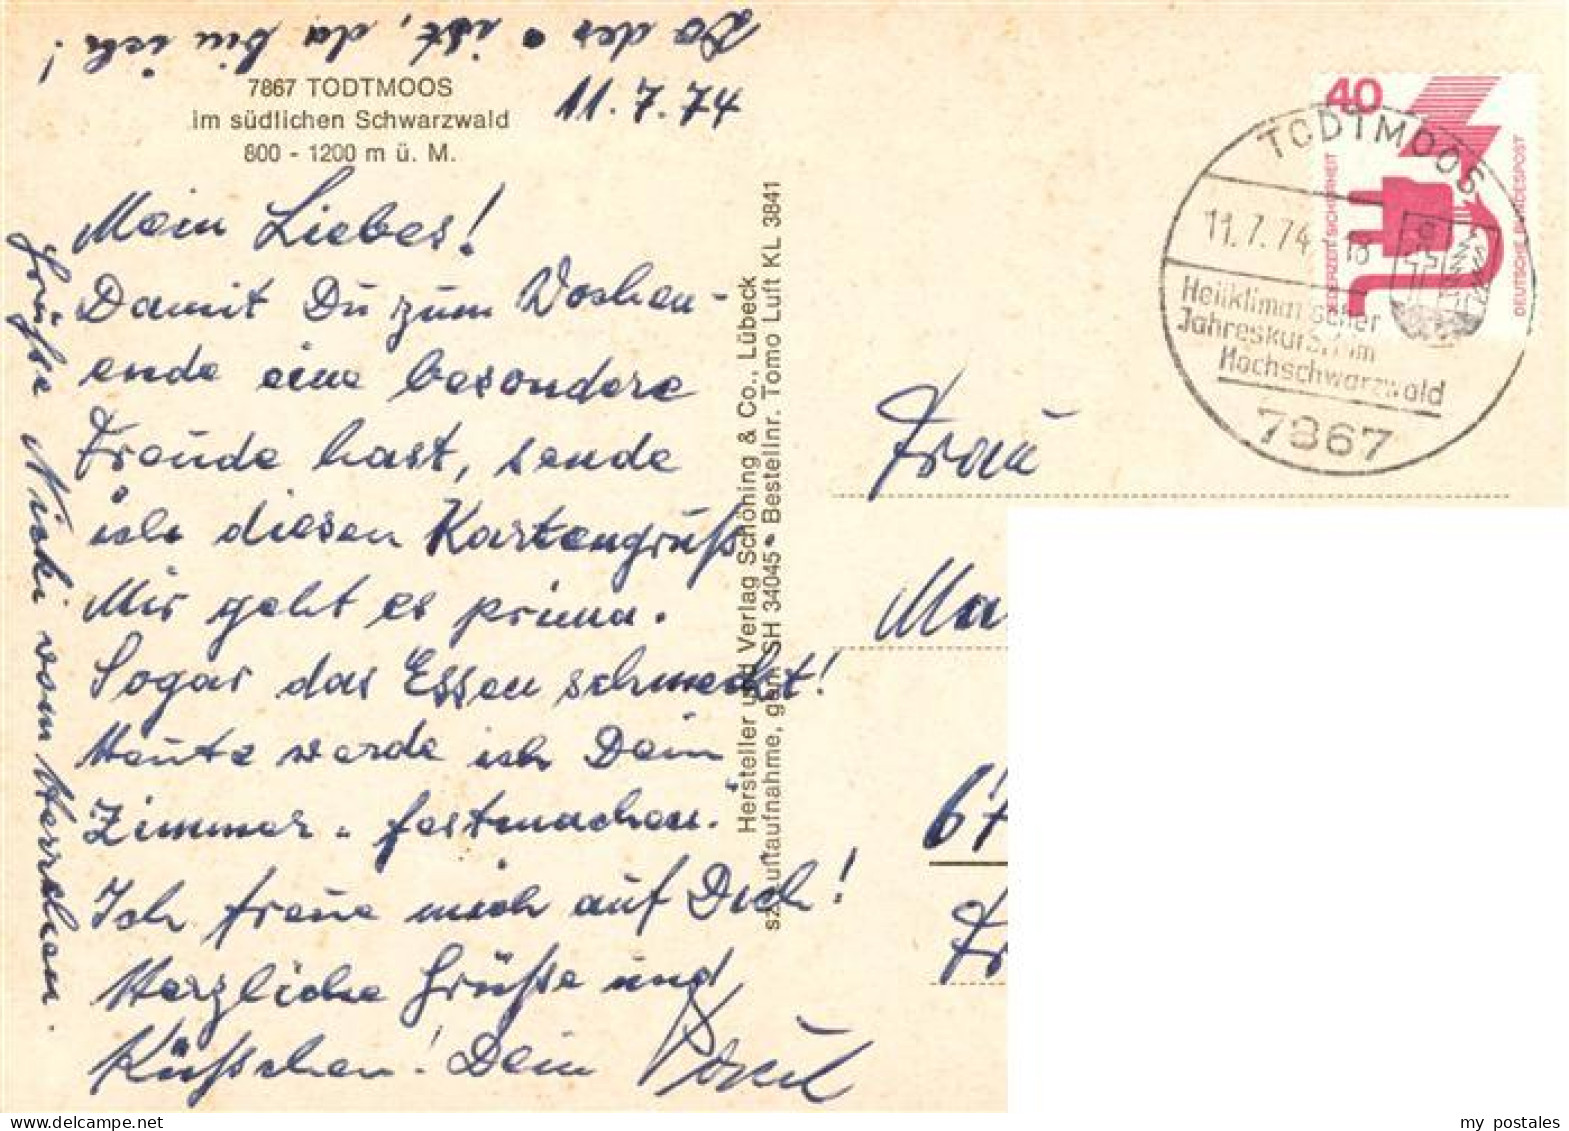 Wo der • ist, da bin ich!
7867 TODTMOOS
im südlichen Schwarzwald
800 - 1200 m ü. M.
11.7.74
Mein Liebes!
Damit Du zum Wochen-
ende eine besondere
Freude hast, sende
ich diesen Kartengruß
Mir geht es prima.
Sogar das Essen schmeckt!
Heute werde ich Dein
Zimmer festmachen.
Ich freue mich auf Dich!
Herzliche Grüße und
Küßchen! Dein Paul
Grüße Nicki vom Herrchen.
Hersteller und Verlag Schöning & Co., Lübeck
Luftaufnahme, gen. SH 34045 • Bestellnr. Tomo Luft KL 3841
40
JEDERZEIT SICHERHEIT
DEUTSCHE BUNDESPOST
TODTMOOS
11.7.74
Heilklimatischer
Jahreskurort im
Hochschwarzwald
7867
Frau
Ma
67
Fr
my postales